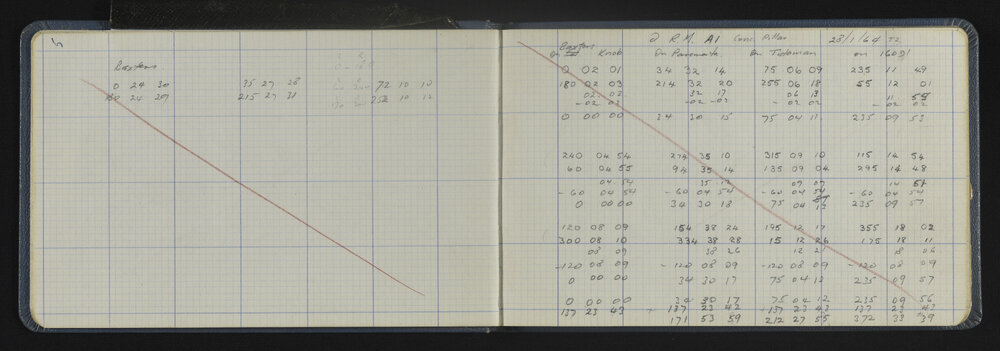 Baxters
0 24 30 35 27 28 72 10 10
180 24 29 215 27 31 252 10 12
@ R.M. A1 Conc. Pillar 28/1/64 T2
On Baxters Knob On Paremata On Titoman on 1609
0 02 01 34 32 14 75 06 09 235 11 49
180 02 03 214 32 20 255 06 18 55 12 01
02 02 32 17 06 13 11 55
- 02 02 - 02 - 02 - 02 02 - 02 02
0 00 00 34 30 15 75 04 11 235 09 53
240 04 54 274 35 10 315 09 10 115 14 54
60 04 55 94 35 14 135 09 04 295 14 48
04 54 35 12 09 07 14 51
- 60 04 54 - 60 04 54 - 60 04 54 - 60 04 54
0 00 00 34 30 18 75 04 13 235 09 57
120 08 09 154 38 24 195 12 17 355 18 02
300 08 10 334 38 28 15 12 26 175 18 11
08 09 38 26 12 21 18 06
- 120 08 09 - 120 08 09 - 120 08 09 - 120 08 09
0 00 00 34 30 17 75 04 12 235 09 57
0 00 00 34 30 17 75 04 12 235 09 56
137 23 43 + 137 23 42 + 137 23 43 137 23 43
171 53 59 212 27 55 372 33 39